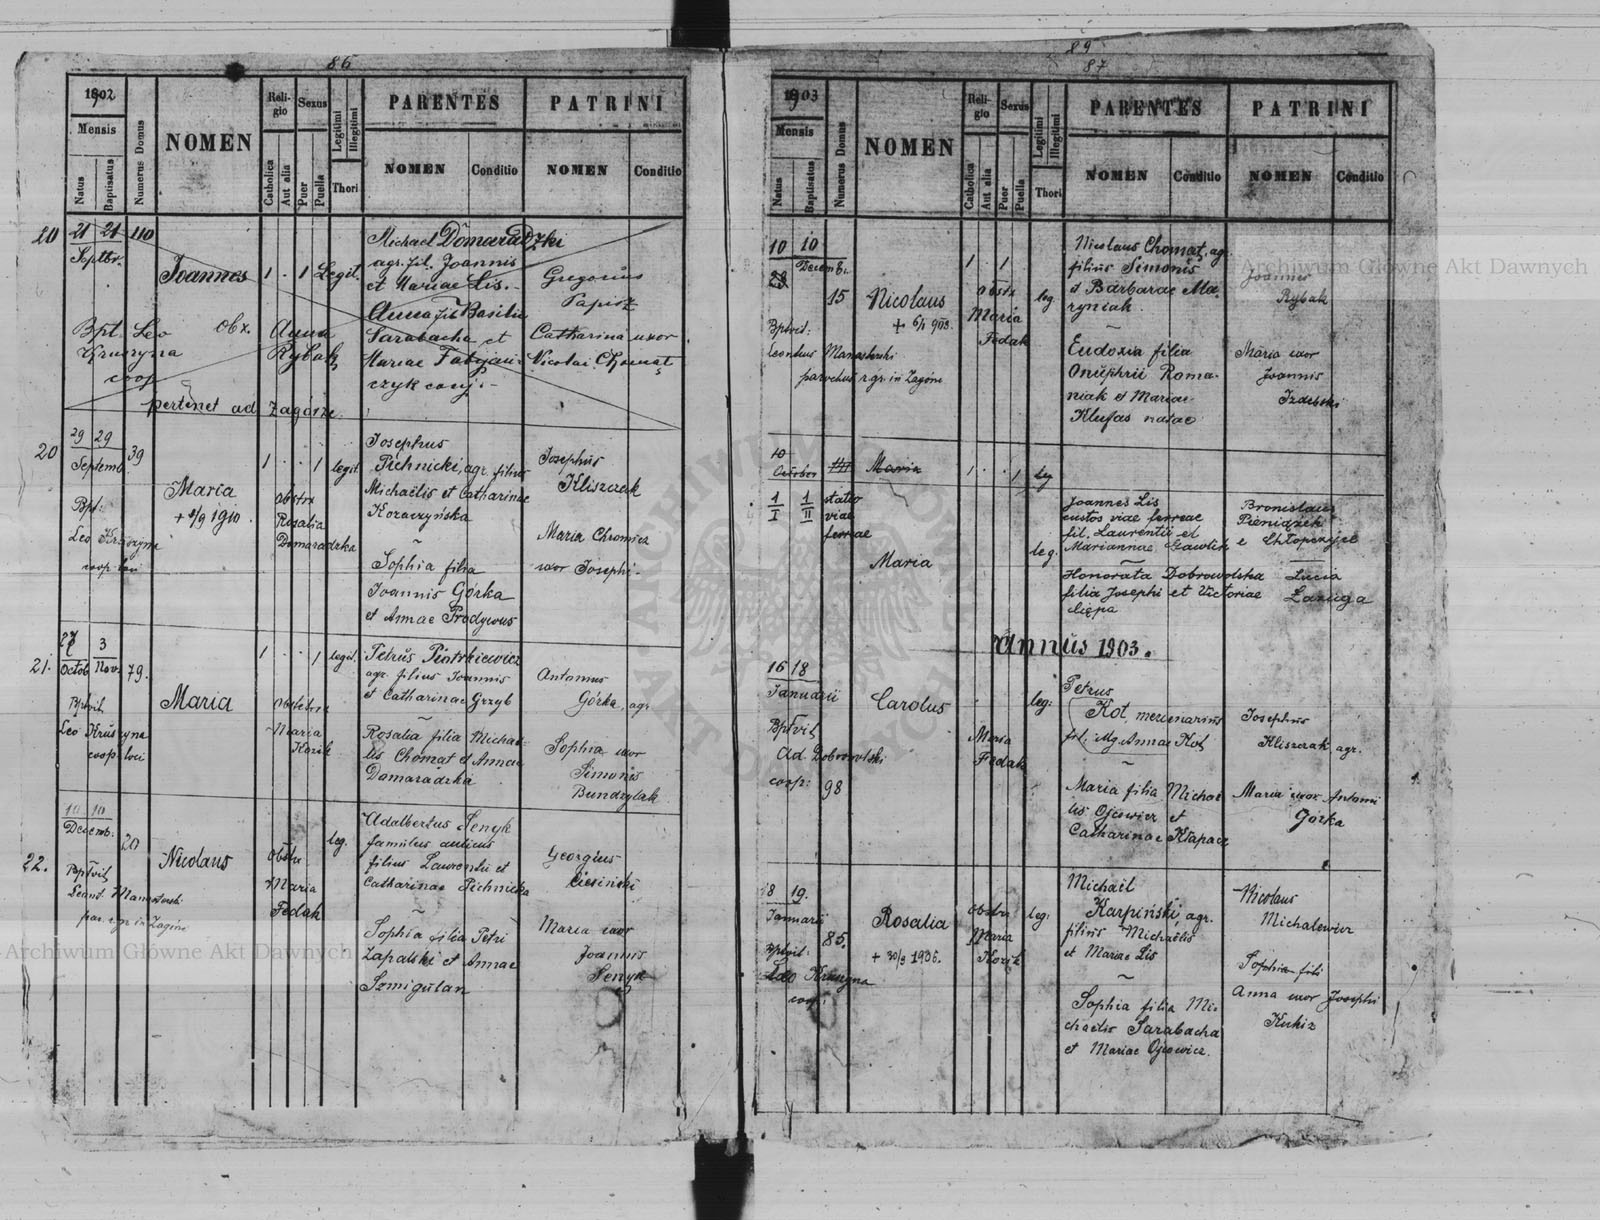 86
1902
Mensis
Natus
Baptisatus
Numerus Domus
NOMEN
Religio
Catholica
Aut alia
Sexus
Puer
Puella
Legitimi
Illegitimi
Thori
PARENTES
NOMEN
Conditio
PATRINI
NOMEN
Conditio
20
21 21 110
Septbr.
Joannes 1 . 1 Legit.
Michael Domaradzki
agr. fil. Joannis
et Mariae Lis. -
Anna fil Basilii
Sarabacha et
Mariae Fabjań-
czyk conj. -
Gregorius
Papisz
Catharina uxor
Nicolai Chomat
Bpt Leo
Kruszyna
coop
obx. Anna
Rybak
pertenet ad Zagórze
20
29 29
Septemb 39
Maria
+ 8/9 1910.
1 . . 1 legit
Bpt:
Leo Kruszyna
coop loci
obstrx
Rosalia
Domaradzka
Josephus
Pichnicki, agr. filius
Michaëlis et Catharinae
Koraczyńska
~
Sophia filia
Joannis Górka
et Annae Prodywus
Josephus
Kliszczak
Maria Chromicz
uxor Josephi -
21.
27 3
Octob Nov. 79.
Maria
1 . . 1 legit.
Bptvit
Leo Kruszyna
coop loci
obstetrix
Maria
Kozik
Petrus Piotrkiewicz
agr. filius Joannis
et Catharinae Grzyb
~
Rosalia filia Michae-
lis Chomat et Annae
Domaradzka
Antonius
Górka, agr
Sophia uxor
Simonis
Bundzylak
22.
10 10
Decemb:
20
Nicolaus
leg.
Bptvit
Leont. Manasterski
par. r.gr. in Zagórze
obstx
Maria
Fedak
Adalbertus Senyk
famulus aulicus
filius Laurentii et
Catharinae Pichnicka
~
Sophia filia Petri
Zapalski et Annae
Szmigulan
Georgius
Cieśiński
Maria uxor
Joannis
Senyk
89
87
1903
Mensis
Natus
Baptisatus
Numerus Domus
NOMEN
Religio
Catholica
Aut alia
Sexus
Puer
Puella
Legitimi
Illegitimi
Thori
PARENTES
NOMEN
Conditio
PATRINI
NOMEN
Conditio
10 10
Decemb.
23.
15
Nicolaus
+ 6/1 903.
1 . 1 leg
Bptvit:
Leontius Manasterski
parochus r.gr. in Zagórze
obstx
Maria
Fedak
Nicolaus Chomat, agr.
filius Simonis
et Barbarae Ma-
ryniak.
~
Eudoxia filia
Onuphrii Roma-
niak et Mariae
Klufas natae
Joannes
Rybak
Maria uxor
Joannis
Izdebski
10
October Maria 1 . . 1 leg
1 1
I II
statio
viae
ferreae
Maria
leg.
Joannes Lis
custos viae ferreae
fil. Laurentii et
Mariannae Gawlik
~
Honorata Dobrowolska
filia Josephi et Victoriae
Ciępa
Bronislaus
Pieniążek
e Chłopczyce
Lucia
Lazuga
Annus 1903.
16 18
Januarii
Carolus
leg:
Bptvit
Ad. Dobrowolski
coop: 98
Maria
Fedak
Petrus
Kot, mercenarius
fil. illeg. Annae Kot
~
Maria filia Michaë-
lis Ojcowicz et
Catharinae Kłapacz
Josephus
Kliszczak agr.
Maria uxor Antonii
Górka
18 19.
Januarii
85.
Rosalia
+ 30/9 1906.
leg:
Bptvit:
Leo Kruszyna
coop:
obstrx
Maria
Kozik
Michaël
Karpiński, agr.
filius Michaëlis
et Mariae Lis
~
Sophia filia Mi-
chaëlis Sarabacha
et Mariae Ojcowicz.
Nicolaus
Michalewicz
Sophia fili
Anna uxor Josephi
Kukiz
Archiwum Główne Akt Dawnych
Archiwum Główne Akt Dawnych